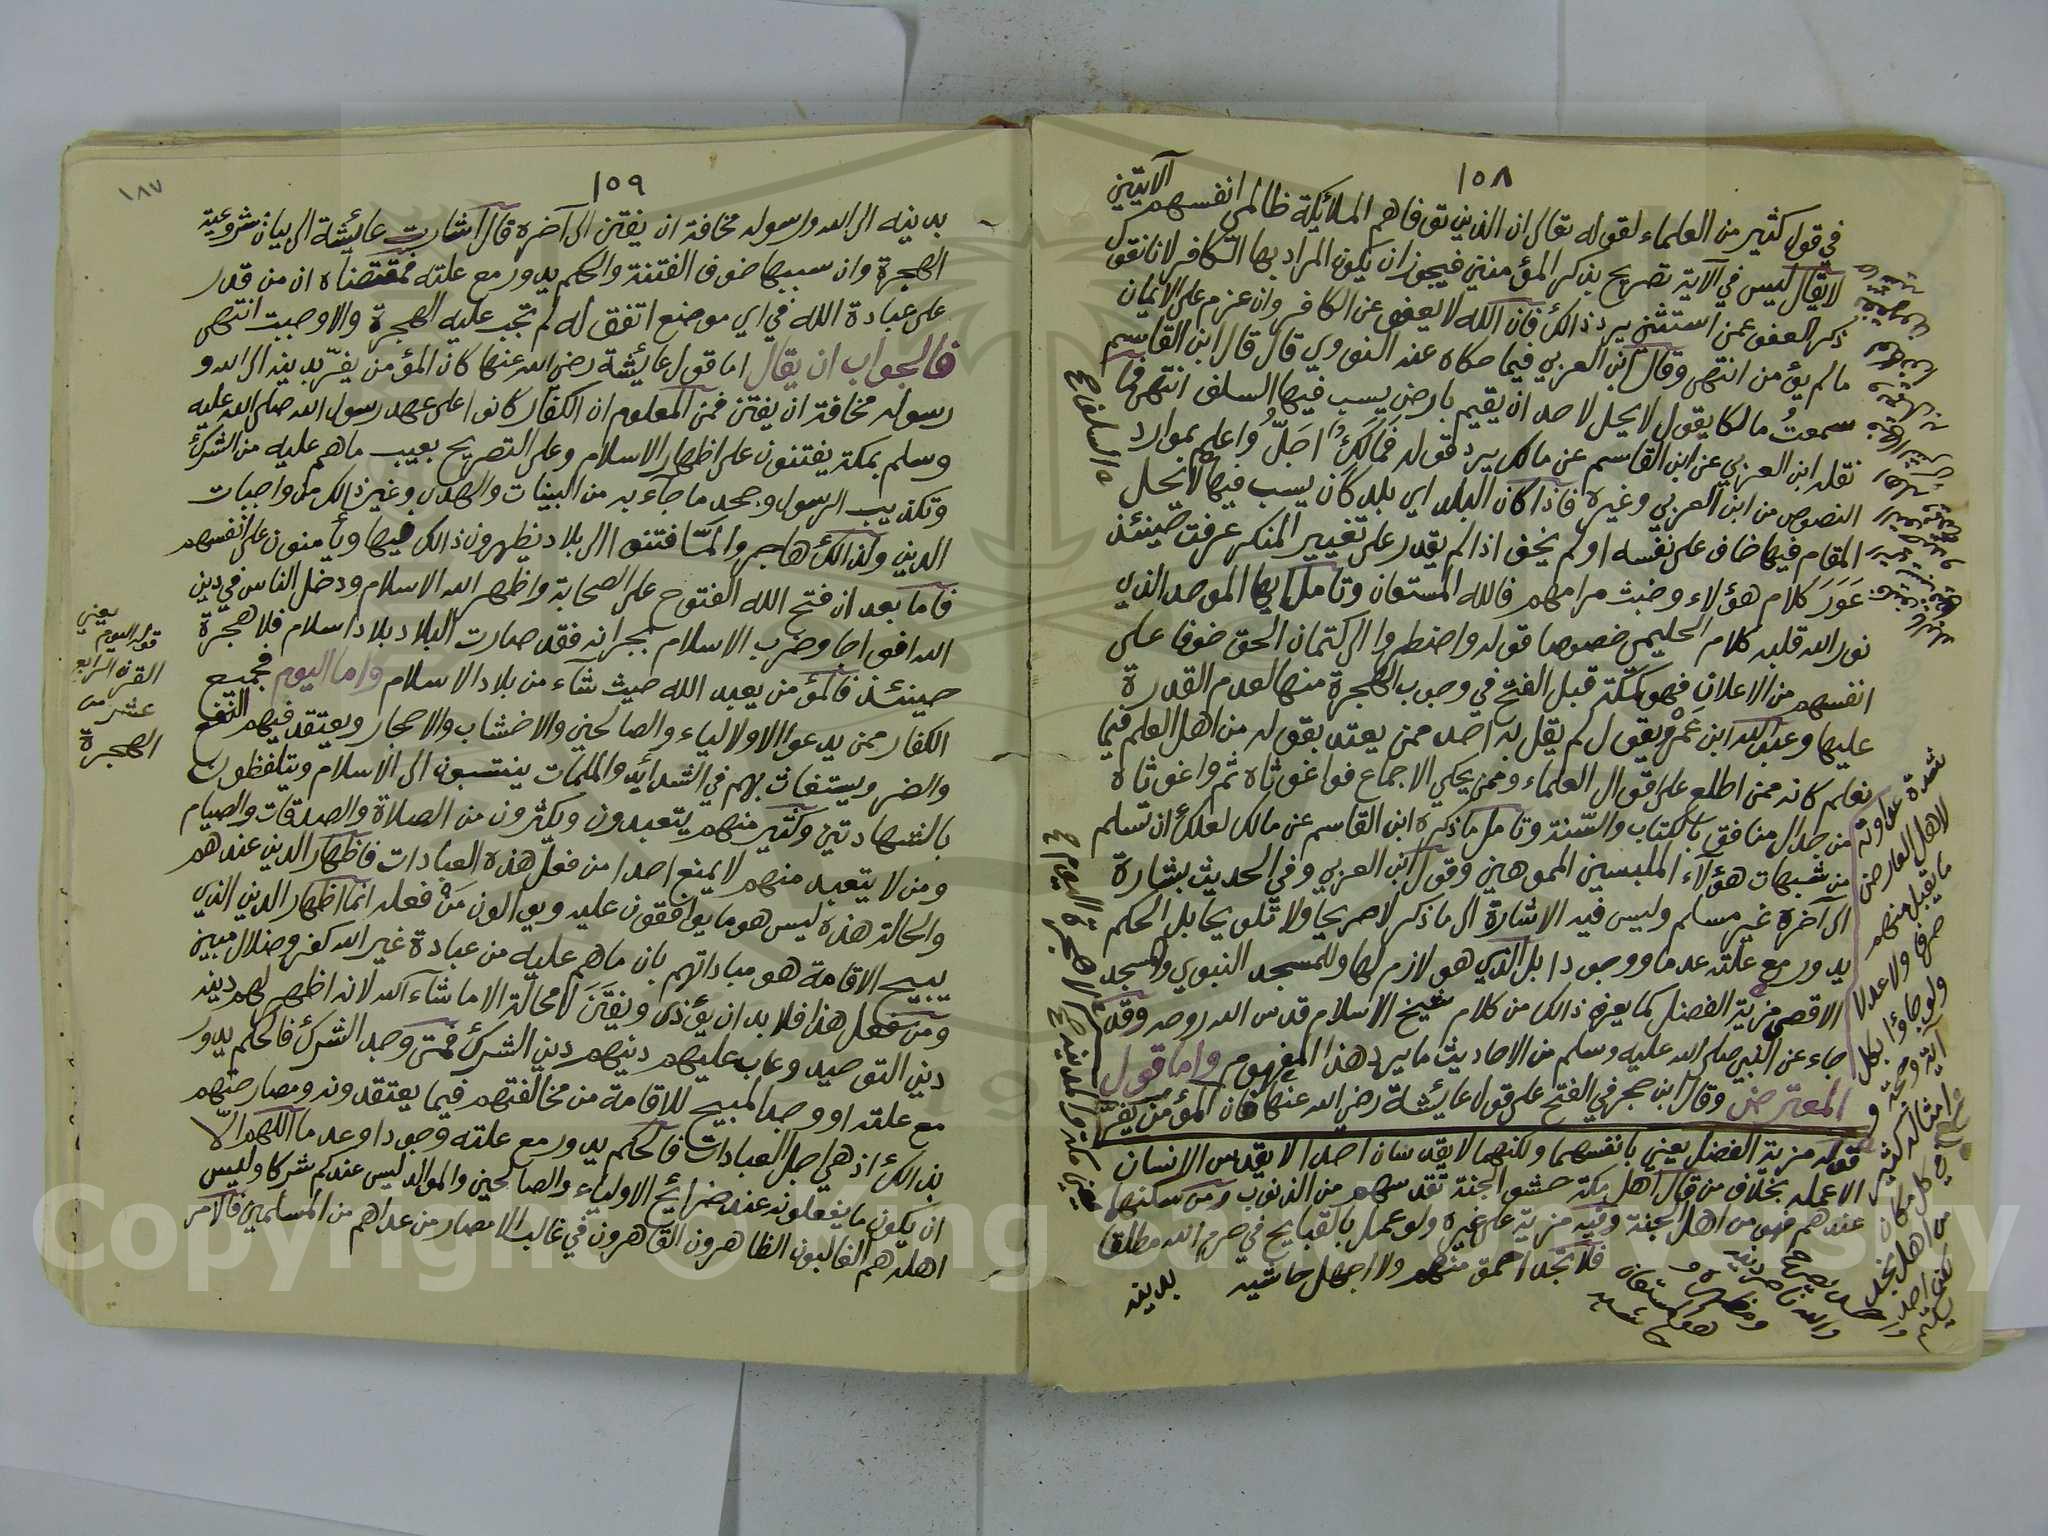 ١٥٨
في قول كثير من العلماء لقوله تعالى ان الذين توفاهم الملائكة ظالمي انفسهم الآيتين
لا يقال ليس في الآية تصريح بذكر المؤمنين فيجوز ان يكون المراد بها الكافر لانا نقول
ذكر العفو عمن استثني يرد ذالك فان الله لا يعفو عن الكافر وان عزم على الايمان
ما لم يؤمن انتهى وقال ابن العربي فيما حكاه عنه النووي قال قال ابن القاسم
سمعتُ مالكا يقول لا يحل لاحد ان يقيم بارض يسب فيها السلف انتهى فما
نقله ابن العربي عن ابن القاسم عن مالك يرد قوله فمالك اجَلّ واعلم بموارد
النصوص من ابن العربي وغيره فاذا كان البلد اي بلد كان يسب فيها لا يحل
المقام فيها خاف على نفسه او لم يخف اذا لم يقدر على تغيير المنكر عرفت حينئذ
عَوَرَ كلام هؤلاء وخبث مرامهم فالله المستعان وتأمل ايها الموحد الذي
نور الله قلبه كلام الحليمي خصوصا قوله واضطر الى كتمان الحق خوفا على
انفسهم من الاعلان فهو كمكّة قبل الفتح في وجوب الهجرة منها لعدم القدرة
عليها وعبد الله ابن عَمْرو يقول لم يقل به احد ممن يعتد بقوله من اهل العلم فيما
نعلم كانه ممن اطلع على اقوال العلماء وممن يحكي الاجماع فواغوثاه ثم واغوثاه
من جدال منافق بالكتاب والسّنة وتأمل ما ذكره ابن القاسم عن مالك لعلك ان تسلم
من شبهات هؤلآء الملبسين المموهين وقول ابن العربي وفي الحديث بشارة
الى آخره غير مسلم وليس فيه الاشارة الى ما ذكر لا صريحا ولا تلويحا بل الحكم
يدور مع علته عدما ووجودا بل الذي هو لازم لها وللمسجد النبوي والمسجد
الاقصى مزية الفضل كما يعرف ذالك من كلام شيخ الاسلام قدس الله روحه وقد
جاء عن النبي صلى الله عليه وسلم من الاحاديث ما يرد هذا المفهوم واما قول
المعترض وقال ابن حجر في الفتح على قول عايشة رضي الله عنها كان المؤمن يفرّ
قوله مزية الفضل يعني بانفسهما ولكنهما لا يقدسان احدا لا يقدس الانسان
الا عمله بخلاف من قال اهل مكة حشو الجنة تقدسهم من الذنوب ومن سكنها
عندهم فهو من اهل الجنة وفيه مزية على غيره ولو عمل بالقبايح في حرم الله مطلقا
فلا تجد احمق منهم ولا اجهل حاشية
بدينه
شدة عداوته
لاهل العارض
ما يقبل منهم
صرفا ولا عدلا
ولو جاؤا بكل
آية وحجة و
امثاله كثير
في كل مكان
من اهل نجد
١٥٩
١٨٧
بدينه الى الله ورسوله مخافة ان يفتن الى آخره قال اشارت عايشة الى بيان مشروعية
الهجرة وان سببها خوف الفتنة والحكم يدور مع علته فمقتضاه ان من قدر
على عبادة الله في اي موضع اتفق له لم تجب عليه الهجرة والا وجبت انتهى
فالجواب ان يقال اما قول عائشة رضي الله عنها كان المؤمن يفرّ بدينه الى الله و
رسوله مخافة ان يفتن فمن المعلوم ان الكفار كانوا على عهد رسول الله صلى الله عليه
وسلم بمكة يفتنون على اظهار الاسلام وعلى التصريح بعيب ما هم عليه من الشرك
وتكذيب الرسول وجحد ما جآء به من البينات والهدى وغير ذالك من واجبات
الدين ولذالك هاجروا لمّا فتنوا الى بلاد يظهرون ذالك فيها ويأمنون على انفسهم
فاما بعد ان فتح الله الفتوح على الصحابة واظهر الله الاسلام ودخل الناس في دين
الله افواجا وضرب الاسلام بجرانه فقد صارت البلاد بلاد اسلام فلا هجرة
حينئذ فالمؤمن يعبد الله حيث شآء من بلاد الاسلام واما اليوم فجميع
الكفار ممن يدعوا الاوليآء والصالحين والاخشاب والاحجار ويعتقد فيهم النفع
والضر ويستغاث بهم في الشدائد والملمات ينتسبون الى الاسلام ويتلفظون
بالشهادتين وكثير منهم يتعبدون ويكثرون من الصلاة والصدقات والصيام
ومن لا يتعبد منهم لا يمنع احدا من فعل هذه العبادات فاظهار الدين عندهم
والحالة هذه ليس هو ما يوافقون عليه ويوالون مَنْ فعله انما اظهار الدين الذي
يبيح الاقامة هو مباداتهم بان ما هم عليه من عبادة غير الله كفر وضلال مبين
ومن فعل هذا فلا بد ان يؤذى ويفتَنَ لا محالة الا ما شآء الله لانه اظهر لهم دينه
دين التوحيد وعاب عليهم دينهم دين الشرك فمتى وجد الشرك فالحكم يدور
مع علته او وجد المبيح للاقامة من مخالفتهم فيما يعتقدونه ومصارحتهم
بذالك اذ هي اصل العبادات فالحكم يدور مع علته وجودا وعدما اللهم الّا
ان يكون ما يفعلونه عند ضرائح الاولياء والصالحين والموالد ليس عندكم شركا وليس
اهله هم الغالبون الظاهرون القاهرون في غالب الامصار من عداهم من المسلمين فالامر
يعني
قوله اليوم
القرن الرابع
عشر من
الهجرة